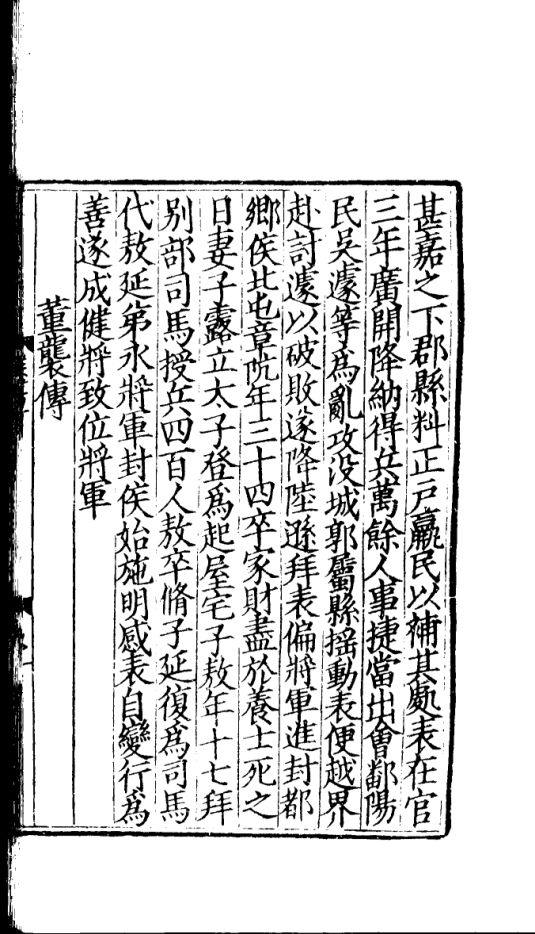 甚嘉之下郡縣料正戸羸民以補其處表在官
三年廣開降納得兵萬餘人事捷當出會鄱陽
民吳遽等爲亂攻没城郭屬縣揺動表便越界
赴討遽以破敗遂降陸遜拜表偏將軍進封都
鄉侯北屯章阬年三十四卒家財盡於養士死之
日妻子露立太子登爲起屋宅子敖年十七拜
别部司馬授兵四百人敖卒脩子延復爲司馬
代敖延弟永將軍封侯始施明感表自變行爲
善遂成健將致位將軍
董襲傳